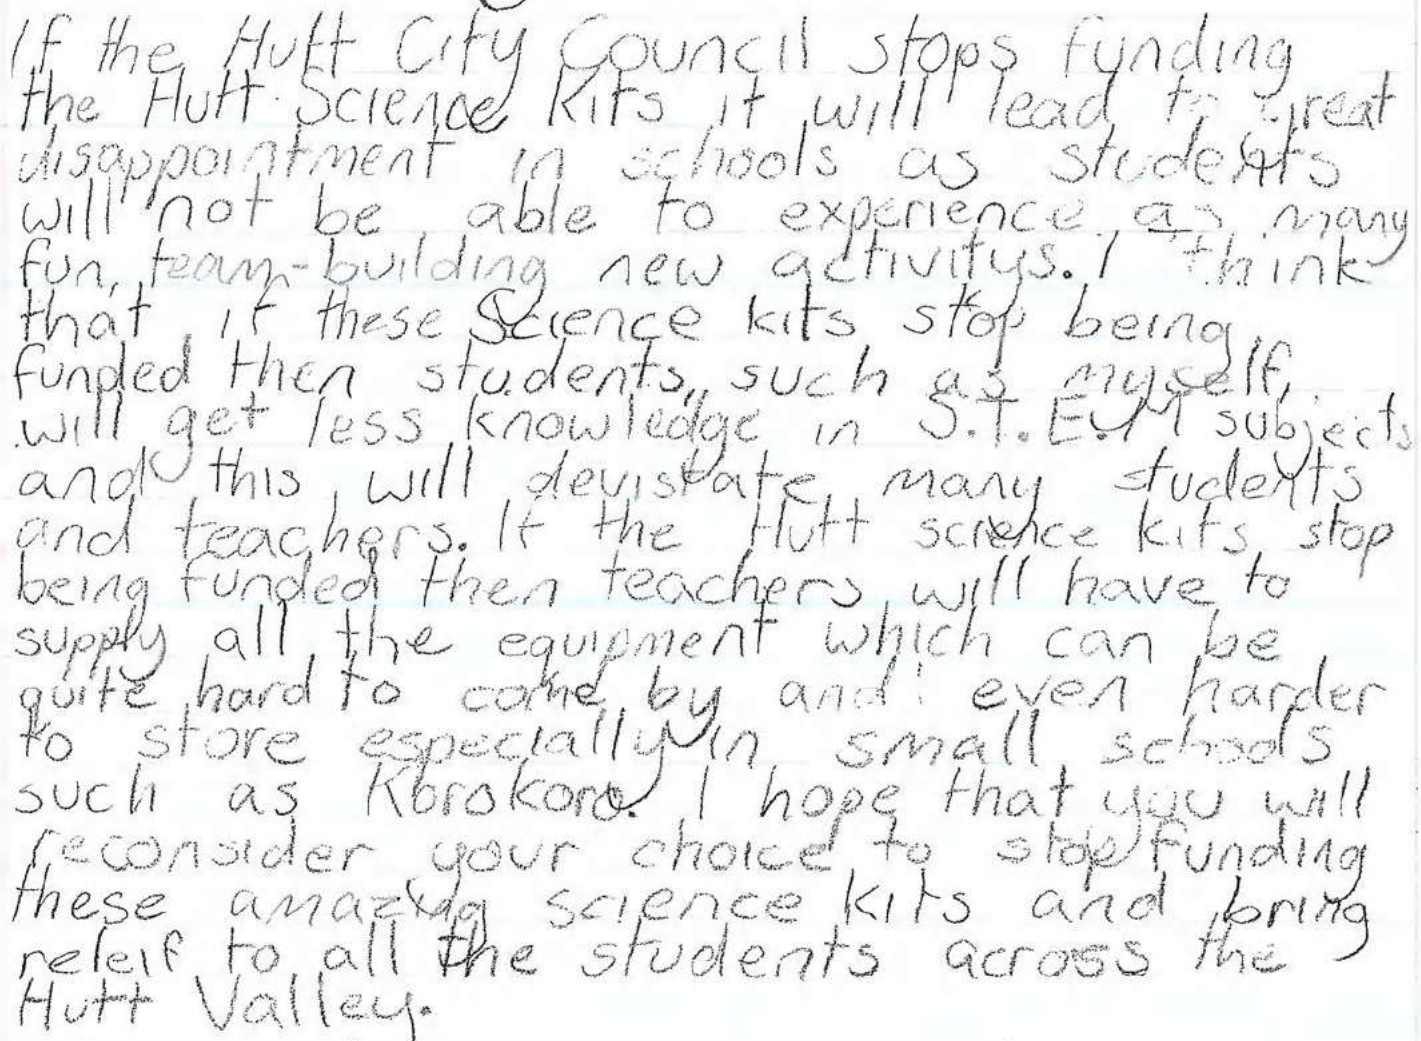 If the Hutt City Council stops funding
the Hutt Science kits it will lead to great
disappointment in schools as students
will not be able to experience as many
fun, team-building new activitys. I think
that if these Science kits stop being
funded then students, such as myself,
will get less knowledge in S.T.E.M subjects
and this will devistate many students
and teachers. If the Hutt science kits stop
being funded then teachers will have to
supply all the equipment which can be
quite hard to come by and even harder
to store especially in small schools
such as Korokoro. I hope that you will
reconsider your choice to stop funding
these amazing science kits and bring
releif to all the students across the
Hutt Valley.